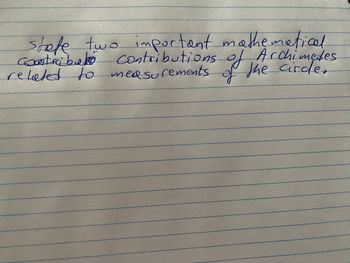 State two important mathematical
contributions of Archimedes
related to measurements of the circle.